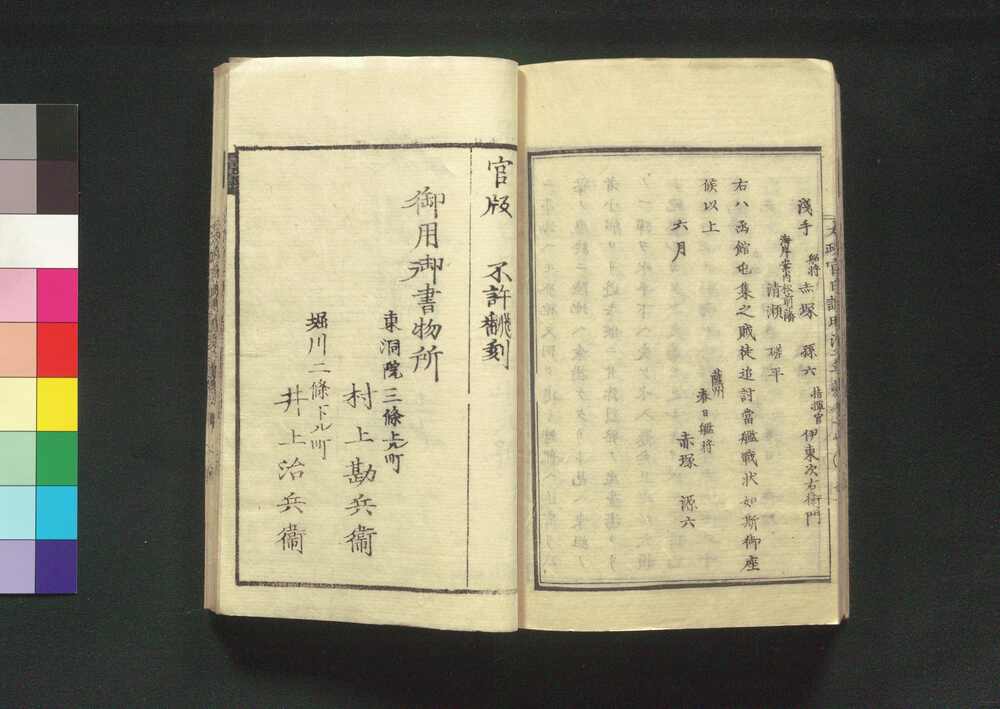 淺手 艦将 赤塚 孫六 指揮官 伊東次右衛門
海岸案内松前藩
清瀬 磋平
右ハ函館屯集之賊徒追討當艦戰状如斯御座
候以上
薩州
春日艦将
赤塚 源六
六月
官版 不許翻刻
御用御書物所
東洞院三條上ル町
村上勘兵衞
堀川二條下ル町
井上治兵衞